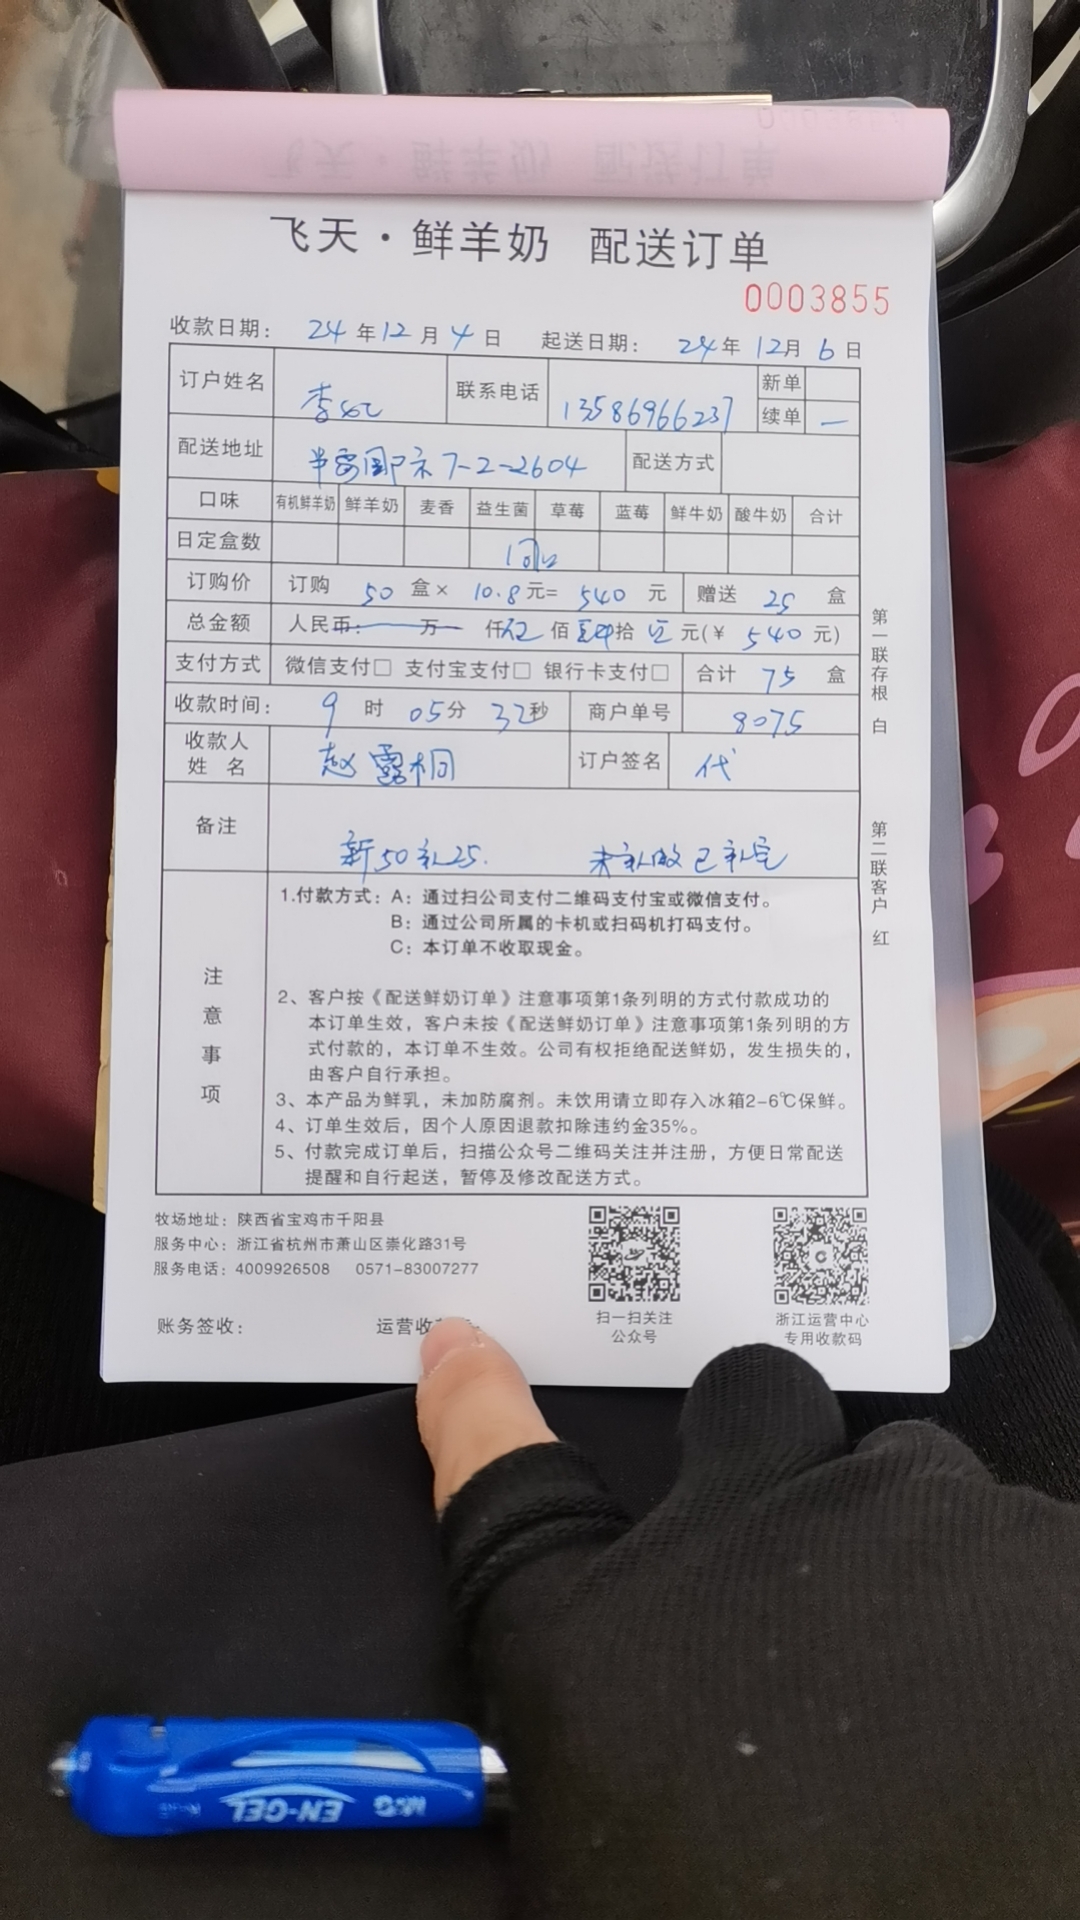 飞天·鲜羊奶 配送订单
0003855
收款日期： 24 年 12 月 4 日 起送日期： 24 年 12 月 6 日
订户姓名 李 联系电话 13586966237 新单
续单 一
配送地址 7-2-2604 配送方式
口味 有机鲜羊奶 鲜羊奶 麦香 益生菌 草莓 蓝莓 鲜牛奶 酸牛奶 合计
日定盒数
订购价 订购 50 盒× 10.8 元= 540 元 赠送 25 盒
总金额 人民币： 万 仟 佰 拾 元(￥ 540 元)
支付方式 微信支付□ 支付宝支付□ 银行卡支付□ 合计 75 盒
收款时间： 9 时 05 分 32 秒 商户单号 8075
收款人
姓 名 赵露桐 订户签名 代
备注 新50礼25. 已礼完
注意事项
1.付款方式：A：通过扫公司支付二维码支付宝或微信支付。
B：通过公司所属的卡机或扫码机打码支付。
C：本订单不收取现金。
2、客户按《配送鲜奶订单》注意事项第1条列明的方式付款成功的
本订单生效，客户未按《配送鲜奶订单》注意事项第1条列明的方
式付款的，本订单不生效。公司有权拒绝配送鲜奶，发生损失的，
由客户自行承担。
3、本产品为鲜乳，未加防腐剂。未饮用请立即存入冰箱2-6℃保鲜。
4、订单生效后，因个人原因退款扣除违约金35%。
5、付款完成订单后，扫描公众号二维码关注并注册，方便日常配送
提醒和自行起送，暂停及修改配送方式。
第一联存根 白
第二联客户 红
牧场地址：陕西省宝鸡市千阳县
服务中心：浙江省杭州市萧山区崇化路31号
服务电话：4009926508 0571-83007277
扫一扫关注
公众号
浙江运营中心
专用收款码
账务签收： 运营收
M&G EN-GEL